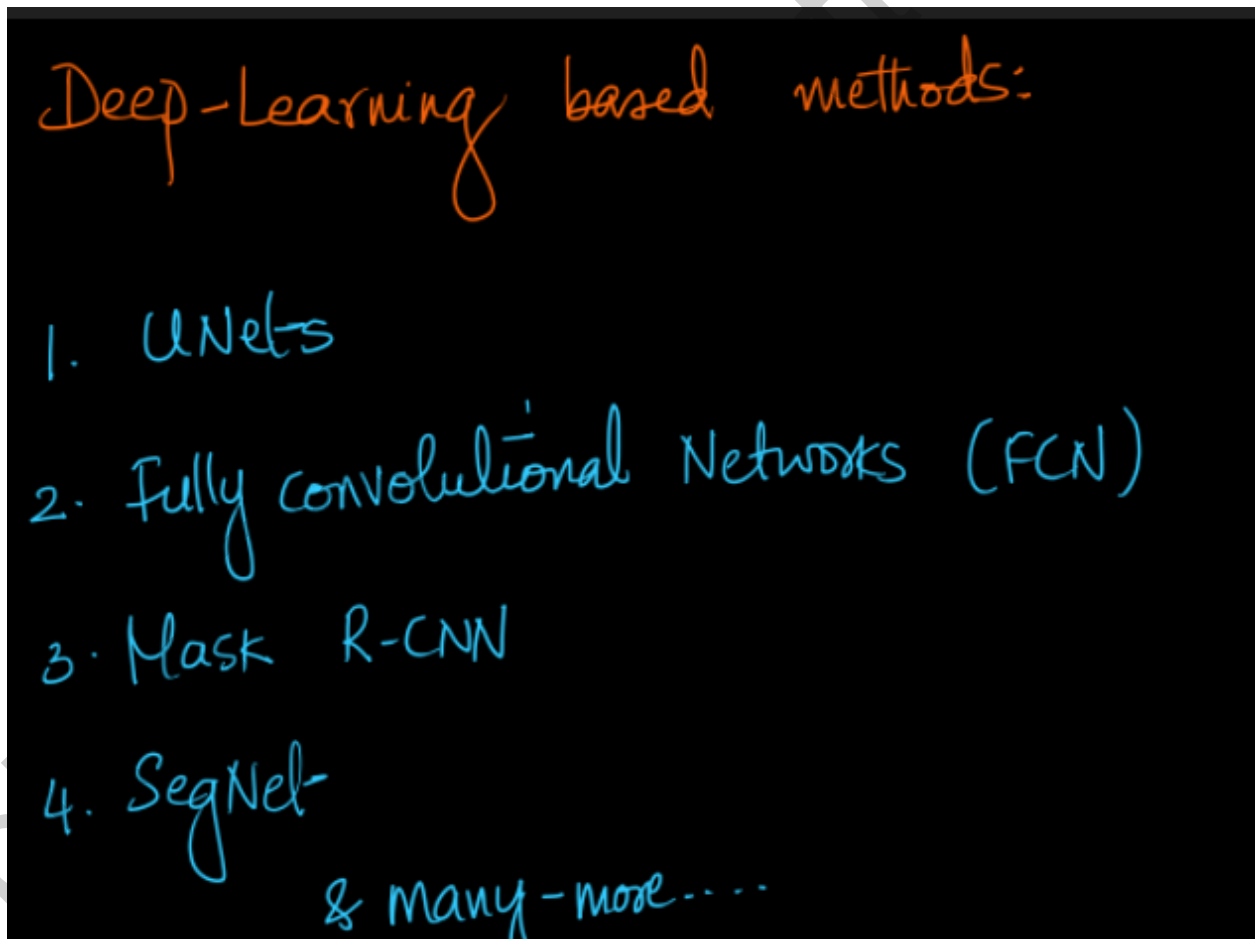 Deep-Learning based methods:
1. UNets
2. Fully convolutional Networks (FCN)
3. Mask R-CNN
4. SegNet
& many-more....